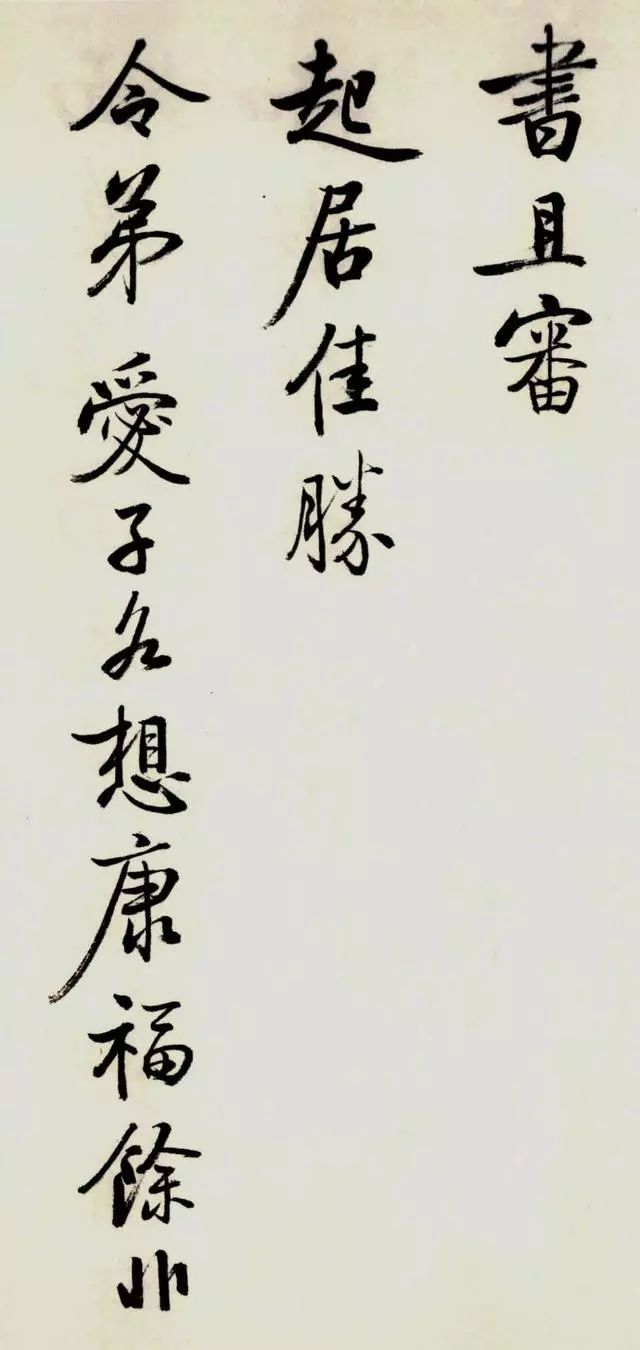 書且審
起居佳勝
令弟愛子各想康福餘非